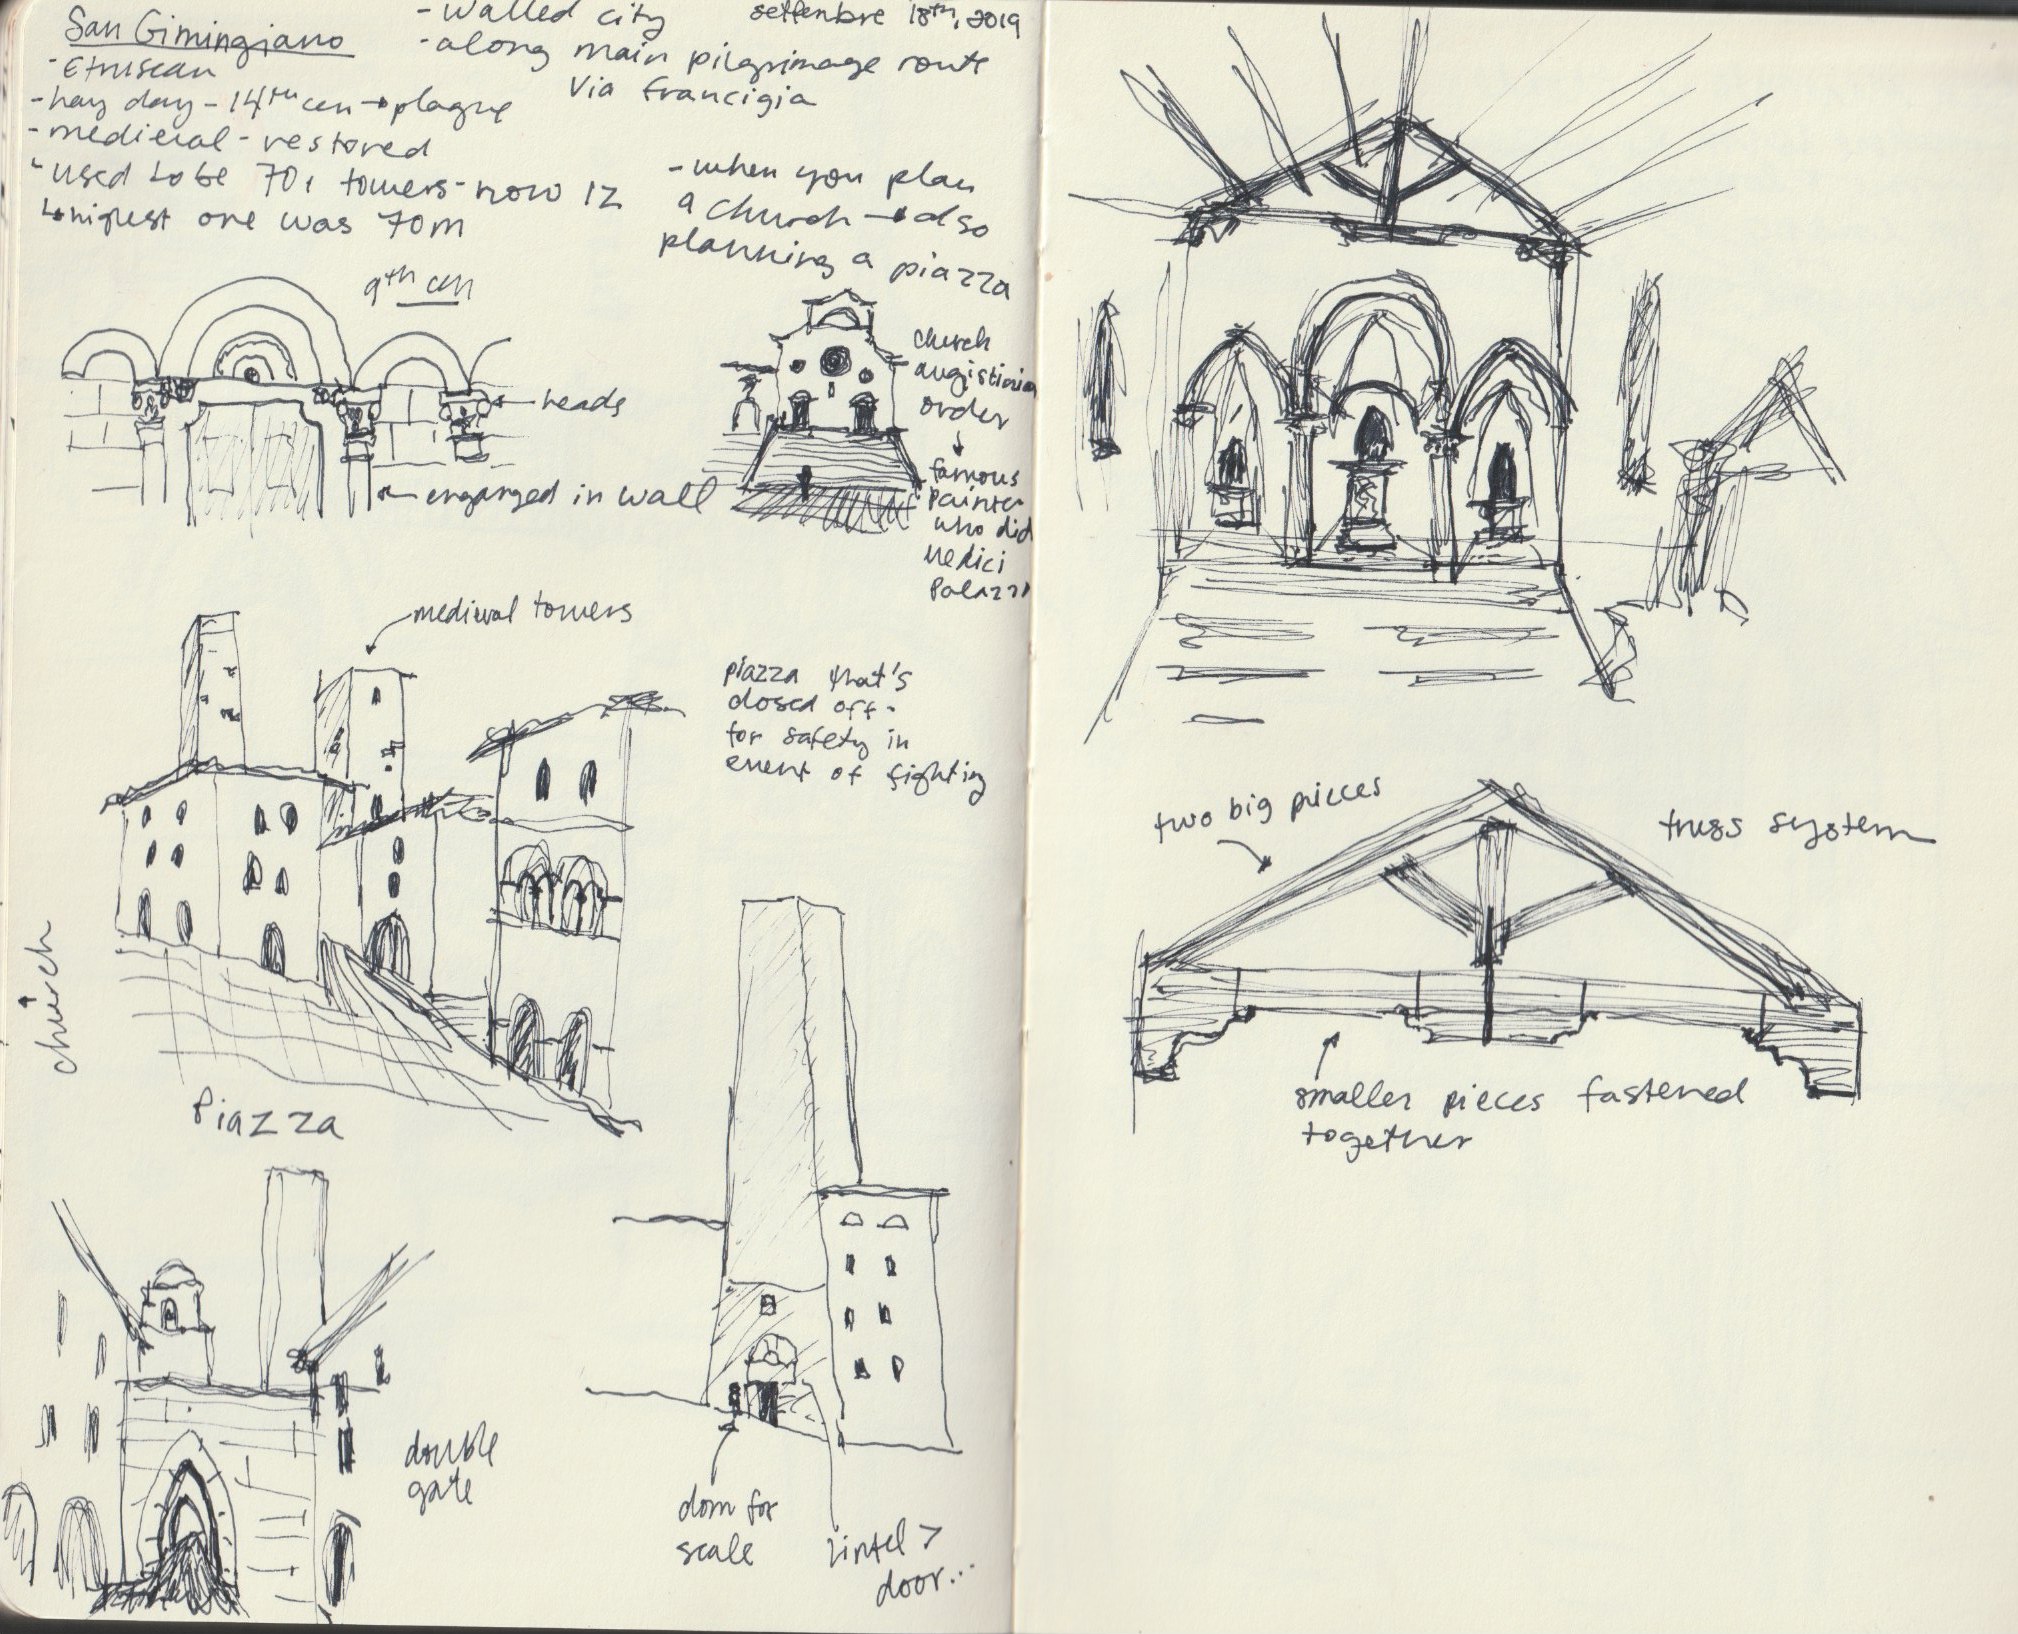 San Gimingiano
- Etruscan
- hay day - 14th cen → plague
- medieval - restored
- used to be 70+ towers - now 12
↳ highest one was 70m
- walled city
- along main pilgrimage route
Via Francigia
settembre 18th, 2019
- when you plan
a church → also
planning a piazza
9th cen
← heads
← enganged in wall
church
augistinian
order
↓
famous
painter
who did
Medici
Palazzo
medieval towers
piazza that's
closed off -
for safety in
event of fighting
church
Piazza
double
gate
dom for
scale
lintel >
door...
two big pieces
truss system
smaller pieces fastened
together